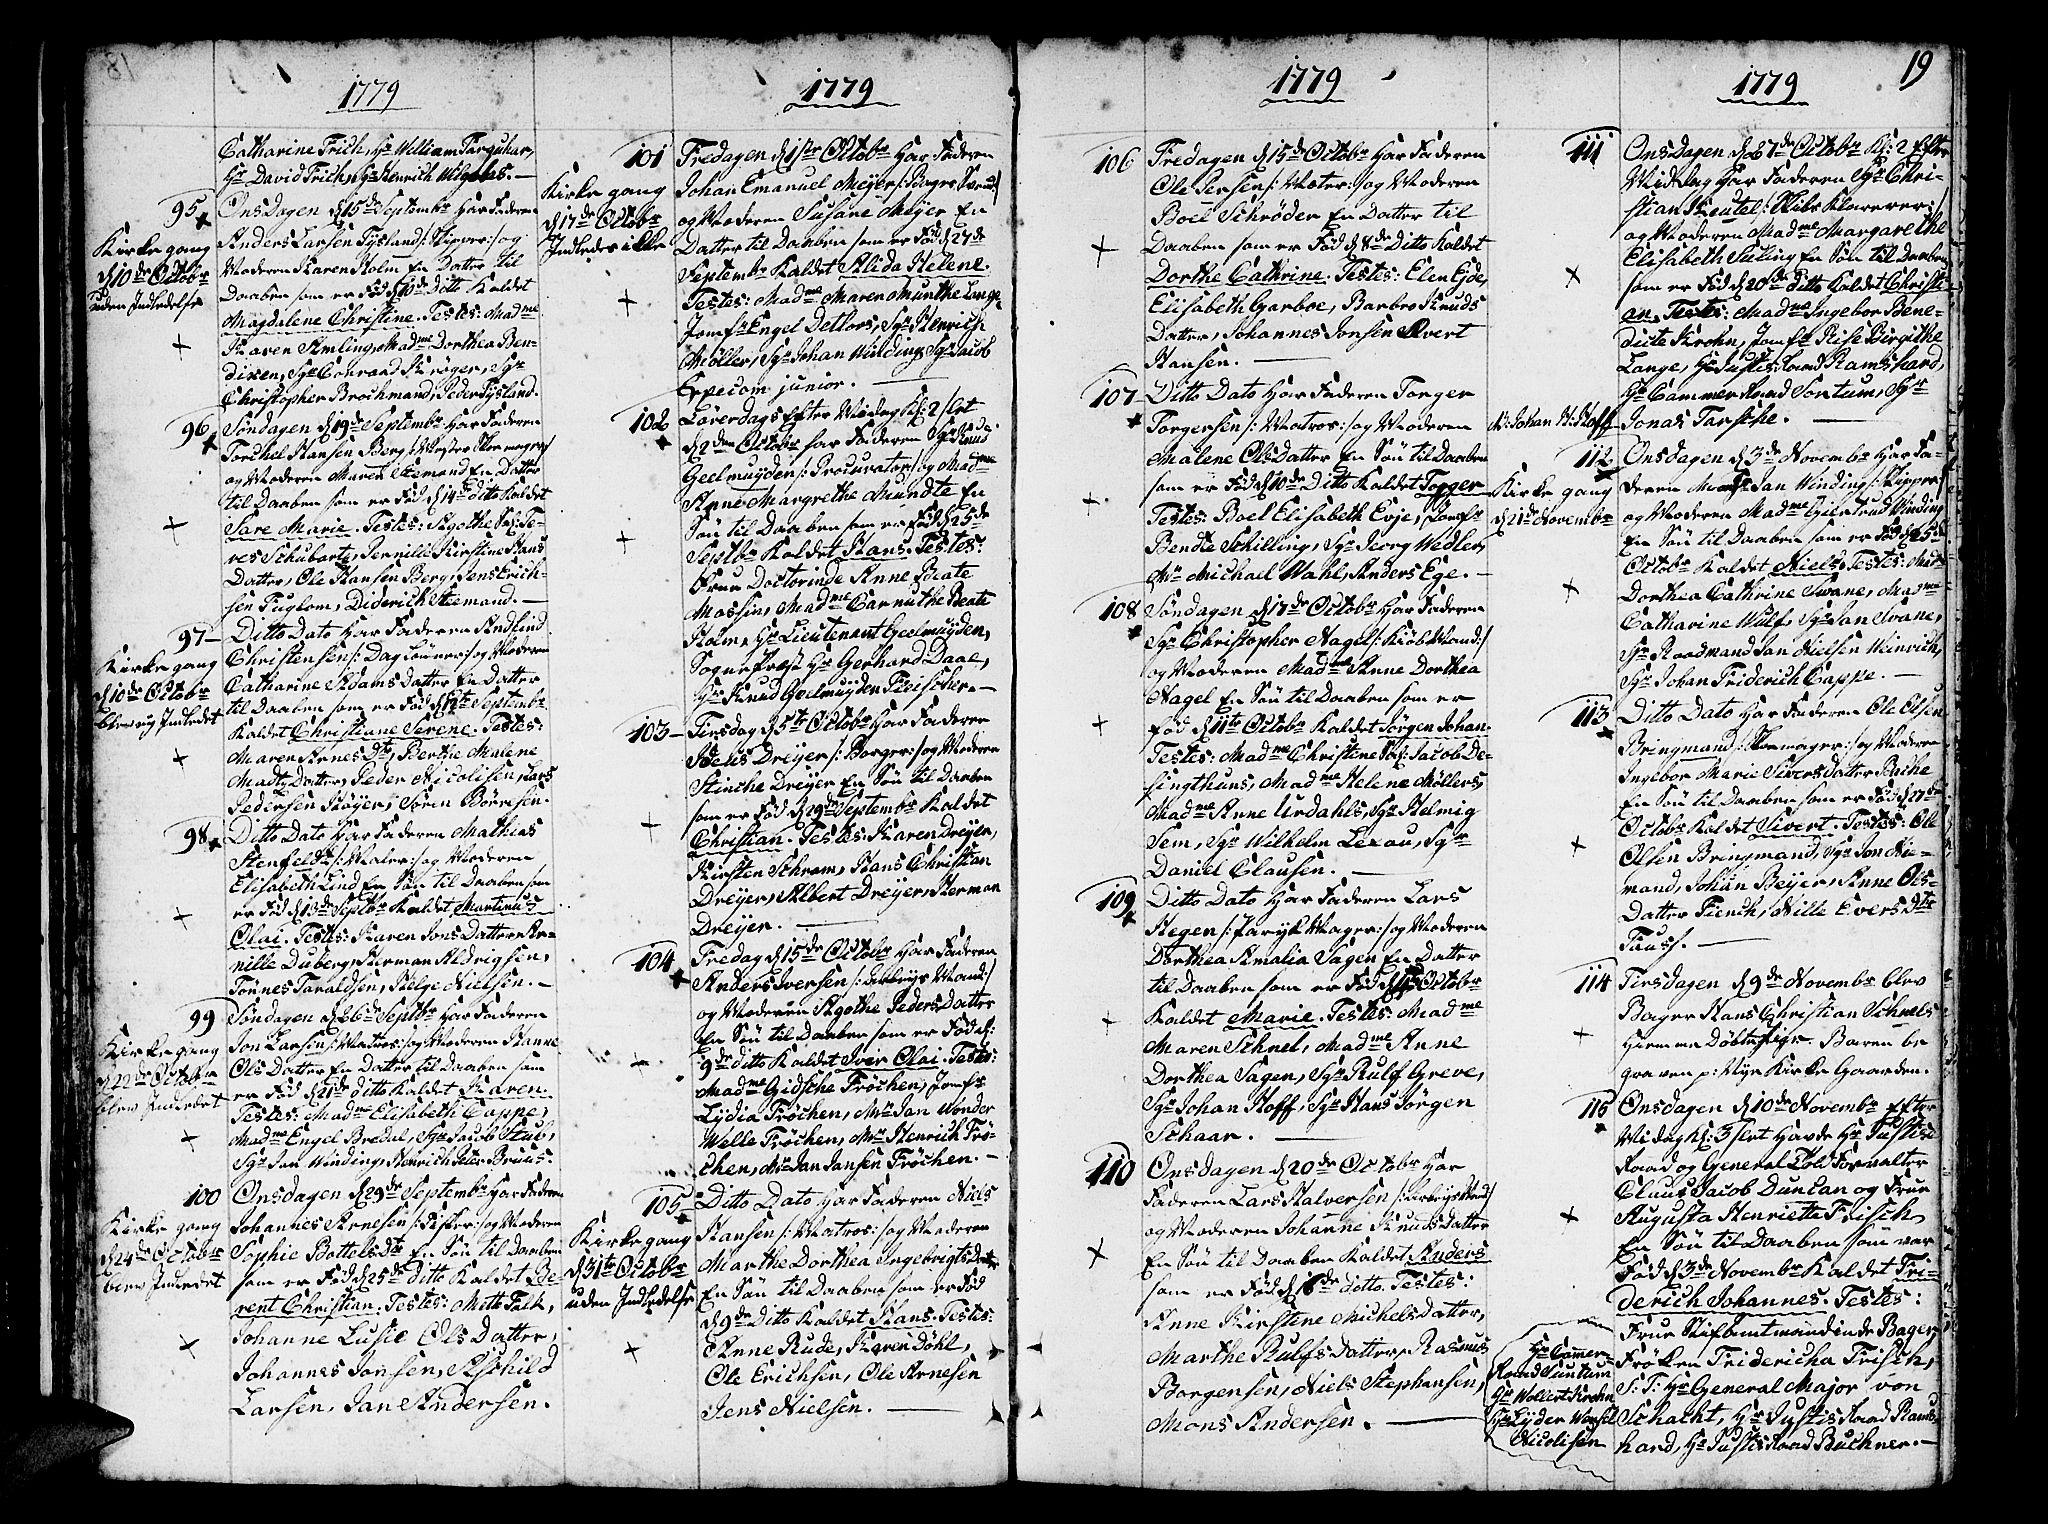 1779
Catharine Frich, Hr William Farquhar,
Hr David Frich, Hr Henrich Wilgohs. —
95
Kirkegang
d 10de Octobr
uden Indledelse
Onsdagen d 15de Septembr har Faderen
Anders Larsen Tysland /:Skipper:/ og
Moderen Karen Holm En Datter til
Daaben som er Fød d 10de Ditto Kaldet
Magdalene Christine. Testes: Madme
Karen Amling, Madme Dorthea Ben-
dixen, Sgr Conrad Krøger, Sgr
Christopher Brochmand, Peder Tysland.
96
Søndagen d 19de Septembr har Faderen
Torchel Hansen Berg /:Mester Skomager/
og Moderen Maren Stemand En Datter
til Daaben som er Fød d 14de ditto Kaldet
Sare Marie. Testes: Agothe Sal: Te-
ves Schubarts, Pernille Kirstine Hans
Datter, Ole Hansen Berg, Jens Erich-
sen Fuglom, Diderich Stemand. —
97
Kirkegang
d 10de Octobr
blev ey Indledet
Ditto Dato har Faderen Andlind
Christensen /:Dag Lønner:/ og Moderen
Catharine Adams Datter En Datter
til Daaben som er Fød d 12te Septembr
Kaldet Christiane Serene. Testes:
Maren Arnes Dtr, Berthe Malene
Mads Datter, Peder Nicolisen, Lars
Pedersen Høyer, Søren Børresen.
98
Ditto Dato har Faderen Mathias
Stenfeldt /:Maler:/ og Moderen
Elisabeth Lind En Søn til Daaben som
er Fød d 13de Septbr Kaldet Martinus
Olai. Testes: Karen Jons Datter, Per-
nille Duberg, Herman Aldrigsen,
Tønnes Taraldsen, Helge Nielsen. —
99
Kirkegang
d 22de Octobr
blev Indledet
Søndagen d 26de Septbr har Faderen
Jon Larsen /:Matros:/ og Moderen Hanne
Ols Datter En Datter til Daaben som
er Fød d 21de ditto Kaldet Karen.
Testes: Madme Elisabeth Cappe,
Madme Engel Bredal, Sgr Jacob Stub,
Sgr Jan Winding, Henrich Peter Bruus.
100
Kirkegang
d 24de Octobr
blev Indledet
Onsdagen d 29de Septembr har Faderen
Johannes Arnesen /:Fisker:/ og Moderen
Sophie Bottels Dtr En Søn til Daaben
som er Fød d 25de ditto Kaldet Be-
rent Christian. Testes: Mette Falk,
Johanne Lusie Ols Datter,
Johannes Jonsen, Aschild
Larsen, Jan Andersen.
1779
101
Kirkegang
d 17de Octobr
Indledes ikke
Fredagen d 1ste Octobr har Faderen
Johan Emanuel Meyer /:Bager Svend:/
og Moderen Susane Meyer En
Datter til Daaben som er Fød d 27de
Septembr Kaldet Alida Helene.
Testes: Madme Maren Munthe Lange,
Jomfr Engel Dethlors, Sgr Henrich
Møller, Sgr Johan Winding, Sgr Jacob
Erpecom junior. —
102
Løverdags Efter Midag Kl: 2 slet
d 2den Octobr har Faderen Sgr Knud
Geelmuyden /:Procurator:/ og Madme
Anne Margrethe Mundte En
Søn til Daaben som er Fød d 25de
Septbr Kaldet Hans. Testes:
Frue Doctorinde Anne Beate
Massin, Madme Carnuthe Beate
Holm, Hr Lieutenant Geelmuyden,
Sogne Præst Hr Gerhard Daae,
Hr Knud Geelmuyden Fleischer. —
103
Tirsdag d 5te Octobr har Faderen
Peder Dreyer /:Borger:/ og Moderen
Stinche Dreyer En Søn til Daaben
som er Fød d 29de Septembr Kaldet
Christian. Testes: Karen Dreyer,
Kirsten Schram, Hans Christian
Dreyer, Albert Dreyer, Herman
Dreyer. —
104
Fredag d 15de Octobr har Faderen
Anders Iversen /:Arbeyds Mand:/
og Moderen Agothe Peders Datter
En Søn til Daaben som er Fød d:
9de ditto Kaldet Iver Olai. Testes:
Madme Gidsche Frøchen, Jomfr
Lydia Frøchen, Mr Jan Wonder
Welle Frøchen, Mr Henrich Frø-
chen, Mr Jan Jansen Frøchen. —
105
Kirkegang
d 31te Octobr
uden Indledelse
Ditto Dato har Faderen Niels
Hansen /:Matros:/ og Moderen
Marthe Dorthea Ingebrigts Datter
En Søn til Daaben som er Fød
d 9de Ditto Kaldet Hans. Testes:
Anne Rude, Karen Döhl,
Ole Erichsen, Ole Arnesen
Jens Nielsen. —
1779
106
Fredagen d 15de Octobr har Faderen
Ole Persen /:Vægter:/ og Moderen
Boel Schrøder En Datter til
Daaben som er Fød d 8de Ditto Kaldet
Dorthe Cathrine. Testes: Elen Eyde,
Elisabeth Garboe, Barbro Knuds
Datter, Johannes Jonsen Evert
Hansen. —
107
Ditto Dato har Faderen Torger
Torgersen /:Matros:/ og Moderen
Malene Ols Datter En Søn til Daaben
som er Fød d 10de Ditto Kaldet Torger
Testes: Boel Elisabeth Evje, Jomfr
Bendte Schilling, Sgr Georg Wedler,
Mr Michail Wahl, Anders Ege. —
108
Søndagen d 17de Octobr har Faderen
Sgr Christopher Nagel /:Kiøb Mand:/
og Moderen Madme Anne Dorthea
Nagel En Søn til Daaben som er
Fød d 11te Octobr Kaldet Jørgen Johan.
Testes: Madme Christine Sal: Jacob De-
singthuns, Madme Helene Møllers,
Madme Anne Urdahls, Sgr Helmig
Sem, Sgr Wilhelm Lexau, Sgr
Daniel Clausen. —
109
Ditto Dato har Faderen Lars
Hegen /:Paryk Mager:/ og Moderen
Dorthea Amalia Sagen En Datter
til Daaben som er Fød d Octobr
Kaldet Marie. Testes: Madme
Maren Schnel, Madme Anne
Dorthea Sagen, Sgr Rulf Greve,
Sgr Johan Hoff, Sgr Hans Jørgen
Schaar. —
110
Onsdagen d 20de Octobr har
Faderen Lars Halversen /:Arbeyds Mand:/
og Moderen Johanne Knuds Datter
En Søn til Daaben Kaldet Anders
som er Fød d 16de ditto. Testes:
Anne Kirstine Michels Datter,
Marthe Rulfs Datter, Rasmus
Borgensen, Niels Stephansen,
Mons Andersen. —
1779
19
111
Onsdagen d 27de Octobr Kl: 2 Efter
Midag har Faderen Sgr Chri-
stian Keutel /:Skibs Klarerer:/
og Moderen Madme Margarethe
Elisabeth Sueling En Søn til Daaben
som er Fød d 20de Ditto Kaldet Christi-
an. Testes: Madme Ingebor Bene-
dicte Krohn, Jomfr Rise Birgithe
Lange, Hr Justis Raad Ramshard,
Hr Cammer Raad Sontum, Sgr
Jonas Tarsche. —
N: Johan H: Hoff
112
Kirkegang
d 21de Novembr
Onsdagen d 3de Novembr har Fa-
deren Jan Winding /:Skipper/
og Moderen Madme Giertrud Winding
En Søn til Daaben som er Fød d 25de
Octobr Kaldet Niels. Testes: Madme
Dorthea Cathrine Swane, Madme
Catharine Wulf, Sgr Jan Svane,
Sgr Raadmand Jan Nielsen Weinrich,
Sgr Johan Friderich Cappe. —
113
Ditto Dato har Faderen Ole Olsen
Bringmand /:Skomager:/ og Moderen
Ingebor Marie Sivers Datter Bache
En Søn til Daaben som er Fød d 27de
Octobr Kaldet Sivert. Testes: Ole
Olsen Bringmand, Sgr Jon Nie-
mand, Johan Beyer, Anne Ols-
Datter Fiench, Nille Evers Dtr
Fauss. —
114
Tirsdagen d 9de Novembr blev
Bager Hans Christian Schnels
Hiemme Døbte Pige Baren be
graven p: Nye Kirke Gaarden.
115
Onsdagen d 10de Novembr Efter
Midag Kl: 3 slet havde Hr Justis
Raad og General Told Forvalter
Claus Jacob Duncan og Frue
Augusta Henriette Frisch
En Søn til Daaben som var
Fød d 3de Novembr Kaldet Fri-
derich Johannes. Testes:
Frue Stifbemtmandinde Bager,
Frøken Fridericha Frisch,
S: T: Hr General Major von
Schacht, Hr Justis Raad Rams
hard, Hr Justis Raad Buchner. —
Hr Cammer-
Raad Suntum
Hr Wollert Krohn
Hr Lyder Wensel
Nicolisen